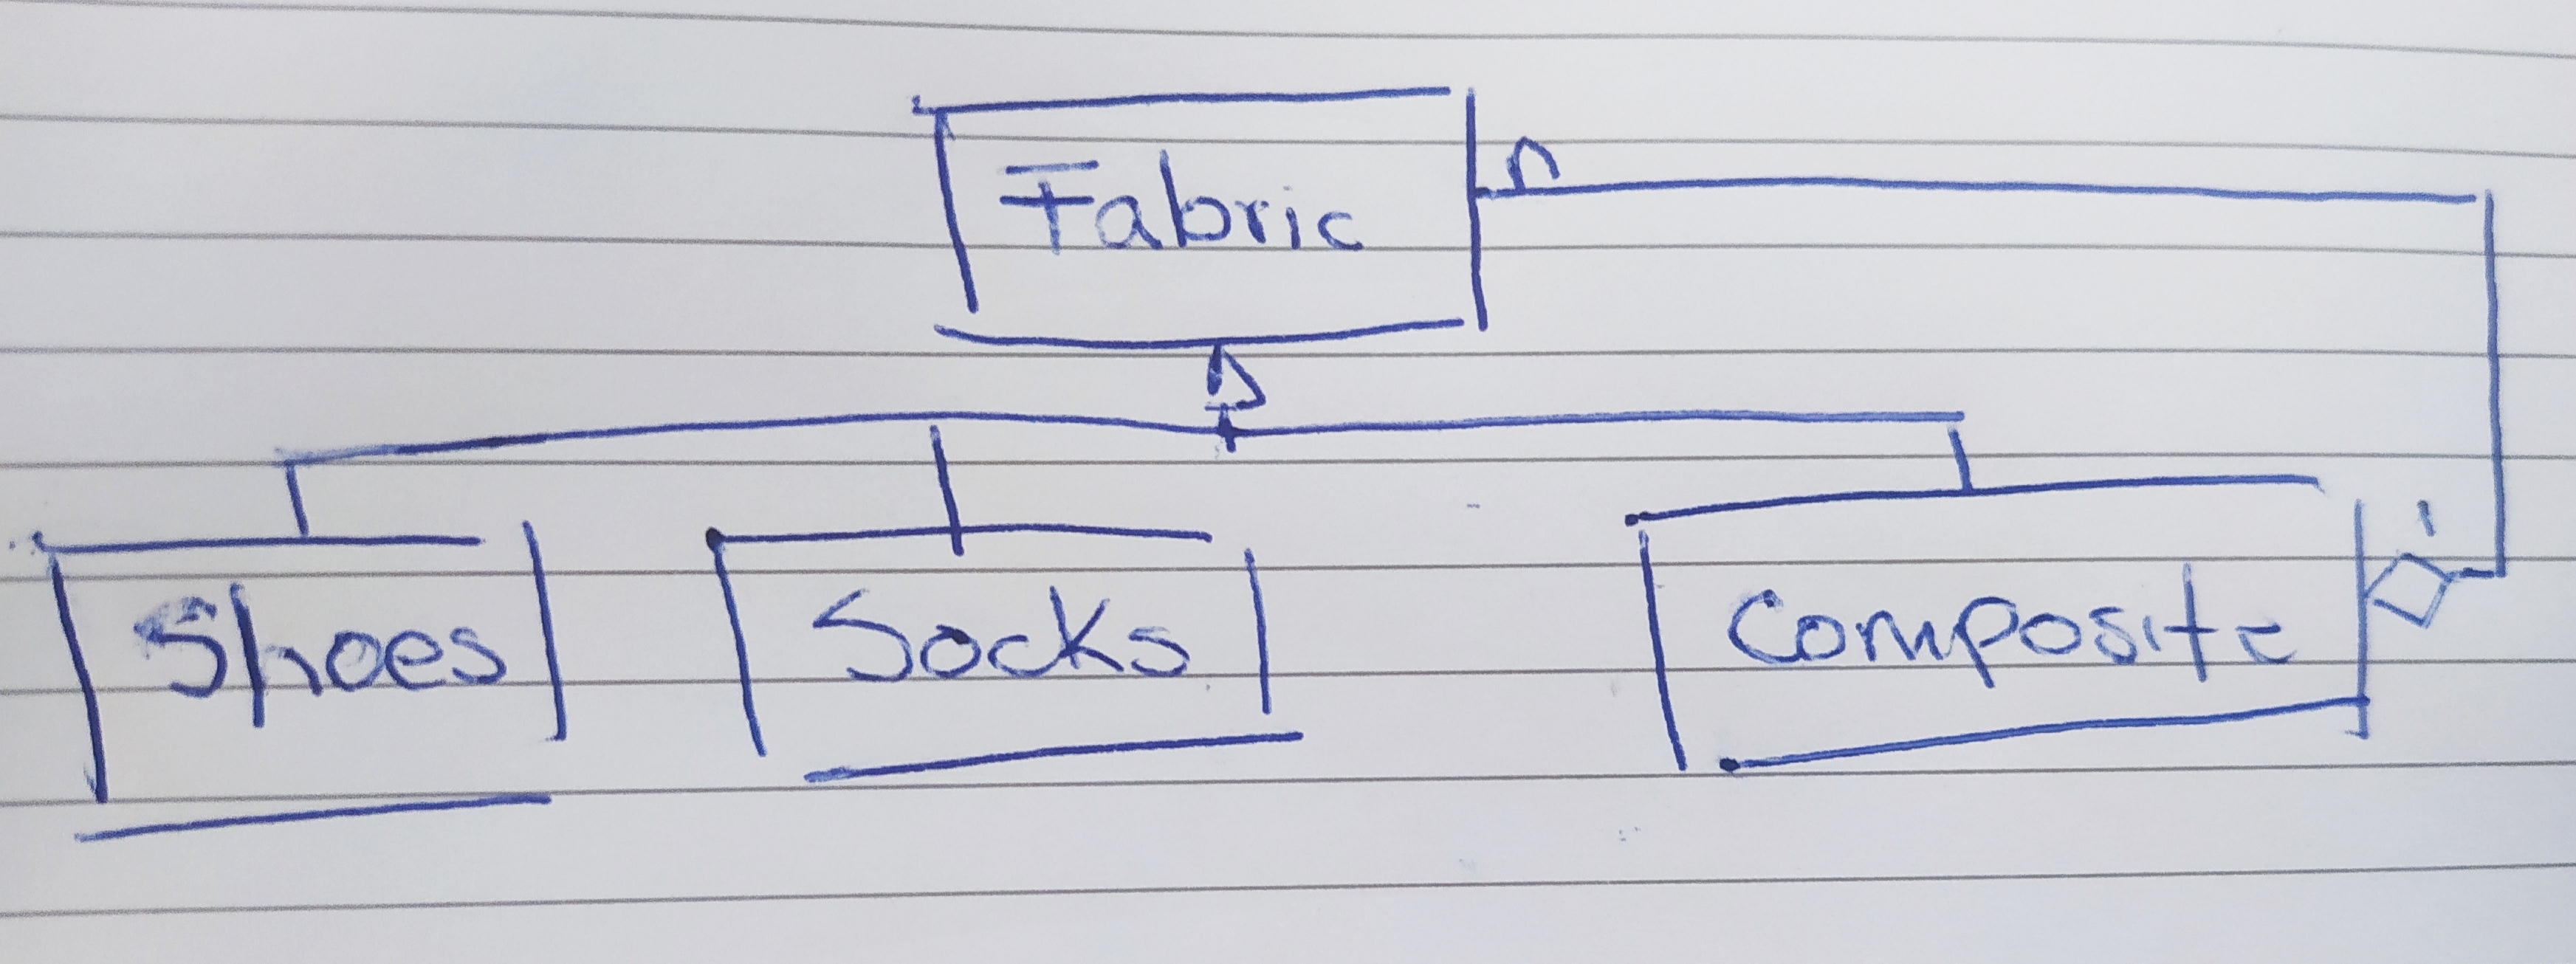 Fabric
n
Shoes
Socks
Composite